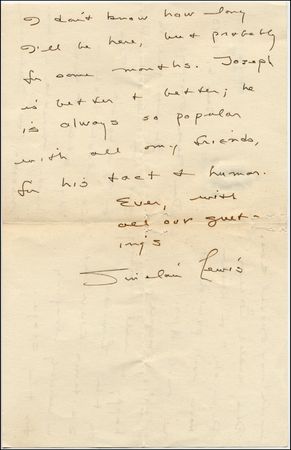 I don't know how long
I'll be here, but probably
for some months. Joseph
is better & better; he
is always so popular
with all my friends,
for his tact & humor.
Ever, with
all our greet-
ings
Sinclair Lewis